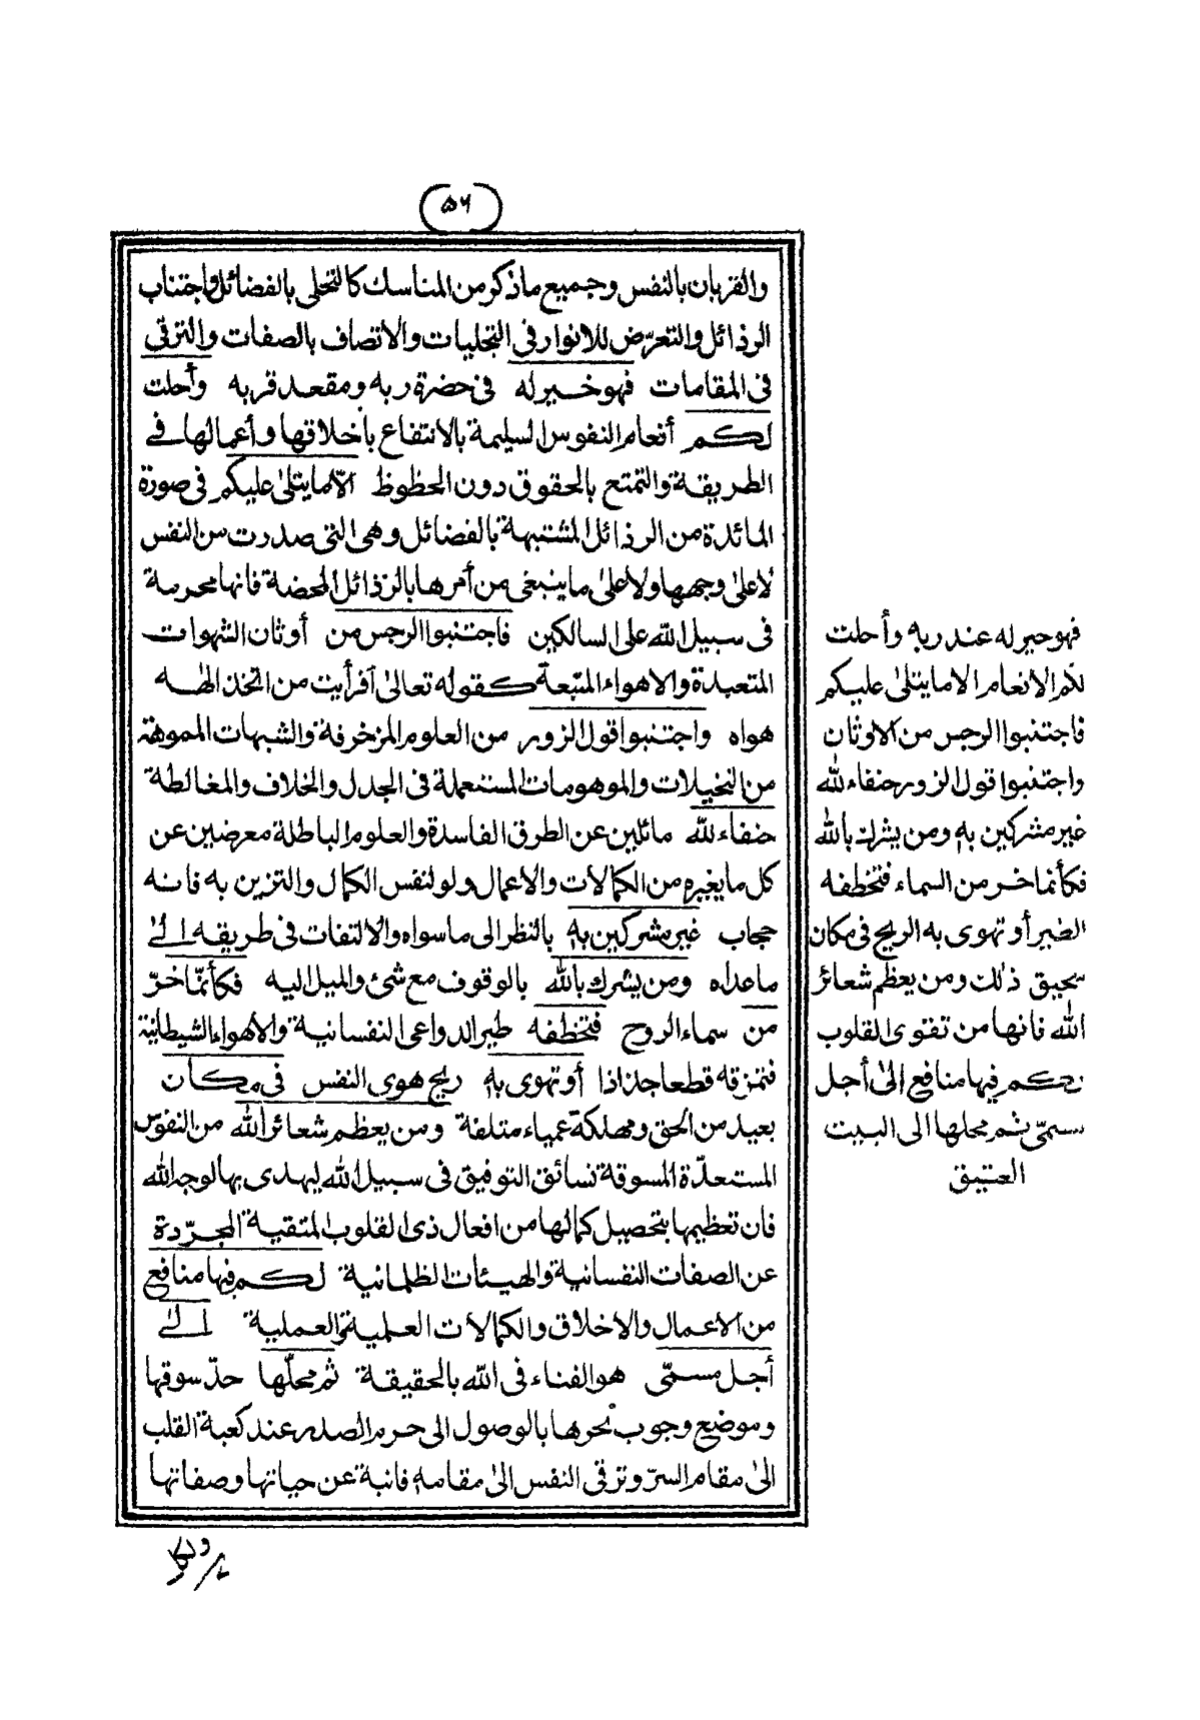 (٥٦)
والقربان بالنفس وجميع ماذكر من المناسك كالتحلى بالفضائل واجتناب
الرذائل والتعرّض للانوار فى التجليات والاتصاف بالصفات والترقى
فى المقامات فهو خير له فى حضرة ربه ومقعد قربه وأحلت
لكم أنعام النفوس السليمة بالانتفاع بأخلاقها وأعمالها فے
الطريقة والتمتع بالحقوق دون الحظوظ الّا مايتلىٰ عليكم فى صورة
المائدة من الرذائل المشتبهة بالفضائل وهى التى صدرت من النفس
لا علىٰ وجهها ولا علىٰ ماينبغى من أمرها بالرذائل المحضة فانها محرمة
فى سبيل الله على السالكين فاجتنبوا الرجس من أوثان الشهوات
المتعبدة والاهواء المتبعة كقوله تعالىٰ أفرأيت من اتخذ الٰهه
هواه واجتنبوا قول الزور من العلوم المزخرفة والشبهات المموهة
من التخيلات والموهومات المستعملة فى الجدل والخلاف والمغالطة
حنفاء لله مائلين عن الطرق الفاسدة والعلوم الباطلة معرضين عن
كل مايغيره من الكمالات والاعمال ولو لنفس الكمال والتزين به فانه
حجاب غير مشركين به بالنظر الى ماسواه والالتفات فى طريقه الىٰ
ماعداه ومن يشرك بالله بالوقوف مع شئ والميل اليه فكأنّما خرّ
من سماء الروح فتخطفه طير الدواعى النفسانية والاهواء الشيطانية
فتمزقه قطعا جذاذا أو تهوى به ريح هوى النفس فى مكان
بعيد من الحق ومهلكة عمياء متلفة ومن يعظم شعائر الله من النفوس
المستعدّة المسوقة نسائق التوفيق فى سبيل الله ليهدى بها لوجه الله
فان تعظيمها بتحصيل كمالها من افعال ذى القلوب المتقية المجرّدة
عن الصفات النفسانية والهيئات الظلمانية لكم فيها منافع
من الاعمال والاخلاق والكمالات العلمية والعملية الىٰ
أجل مسمّى هو الفناء فى الله بالحقيقة ثم محلّها حدّ سوقها
وموضع وجوب نحرها بالوصول الى حرم الصدر عند كعبة القلب
الىٰ مقام السرّ وترقى النفس الىٰ مقامه فانية عن حياتها وصفاتها
فهو خير له عند ربه وأحلت
لكم الانعام الا مايتلىٰ عليكم
فاجتنبوا الرجس من الاوثان
واجتنبوا قول الزور حنفاء لله
غير مشركين به ومن يشرك بالله
فكأنما خر من السماء فتخطفه
الطير أو تهوى به الريح فى مكان
سحيق ذٰلك ومن يعظم شعائر
الله فانها من تقوى القلوب
لكم فيها منافع الىٰ أجل
مسمّى ثم محلها الى البيت
العتيق